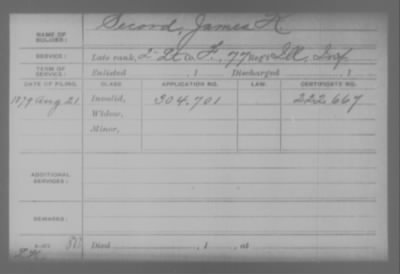 NAME OF SOLDIER: Secord, James H
SERVICE: Late rank, 2" Lt Co. F, 77 Reg't Ill. Inf
TERM OF SERVICE: Enlisted , 1 Discharged , 1
DATE OF FILING. CLASS. APPLICATION NO. LAW. CERTIFICATE NO.
1879 Aug 21 Invalid, 304.701 222.667
Widow,
Minor,
ADDITIONAL SERVICES:
REMARKS:
Died , 1 , at